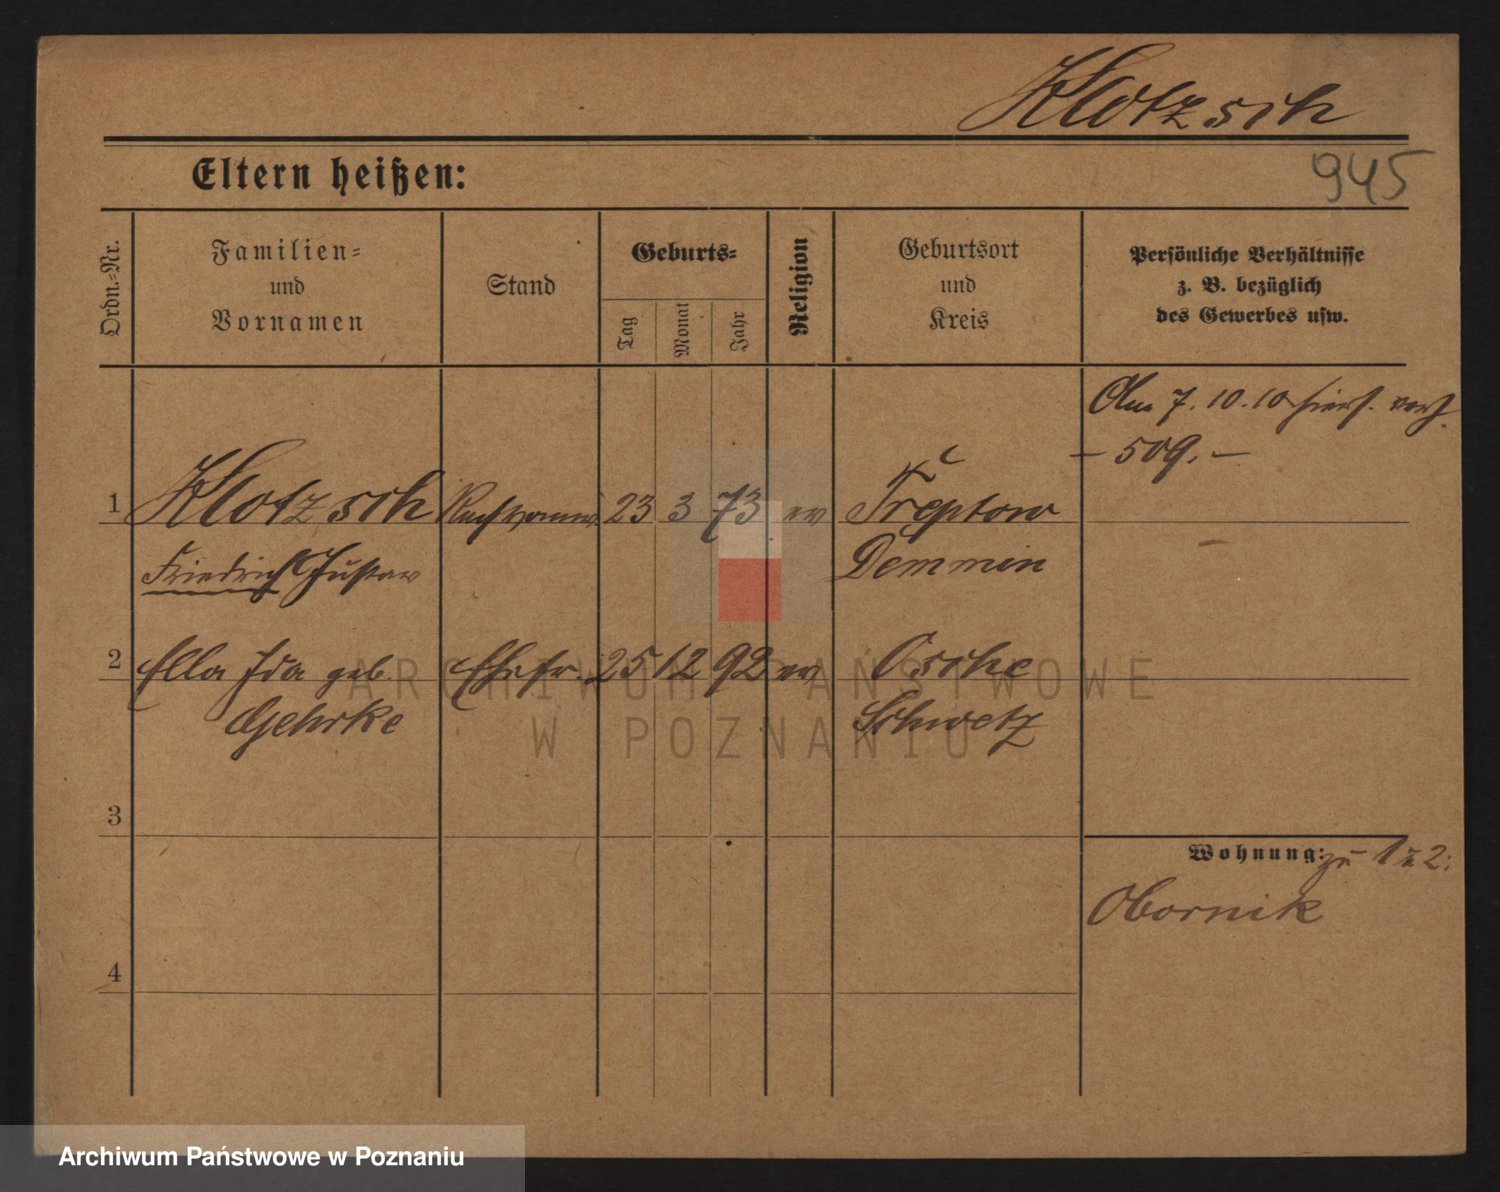 Klotzsch
945
Eltern heißen:
Ordn.-Nr.
Familien-
und
Vornamen
Stand
Geburts-
Tag
Monat
Jahr
Religion
Geburtsort
und
Kreis
Persönliche Verhältnisse
z. B. bezüglich
des Gewerbes usw.
Am 7. 10. 10 hiers. verh.
- 509. -
1 Klotzsch 23 3 73 ev Treptow
Friedrich Gustav Demmin
2 Ella Ida geb. Ehefr. 25 12 92 ev Osche
Gehrke Schwetz
3
Wohnung: zu 1 u 2:
Obornik
4
ARCHIWUM PAŃSTWOWE
W POZNANIU
Archiwum Państwowe w Poznaniu